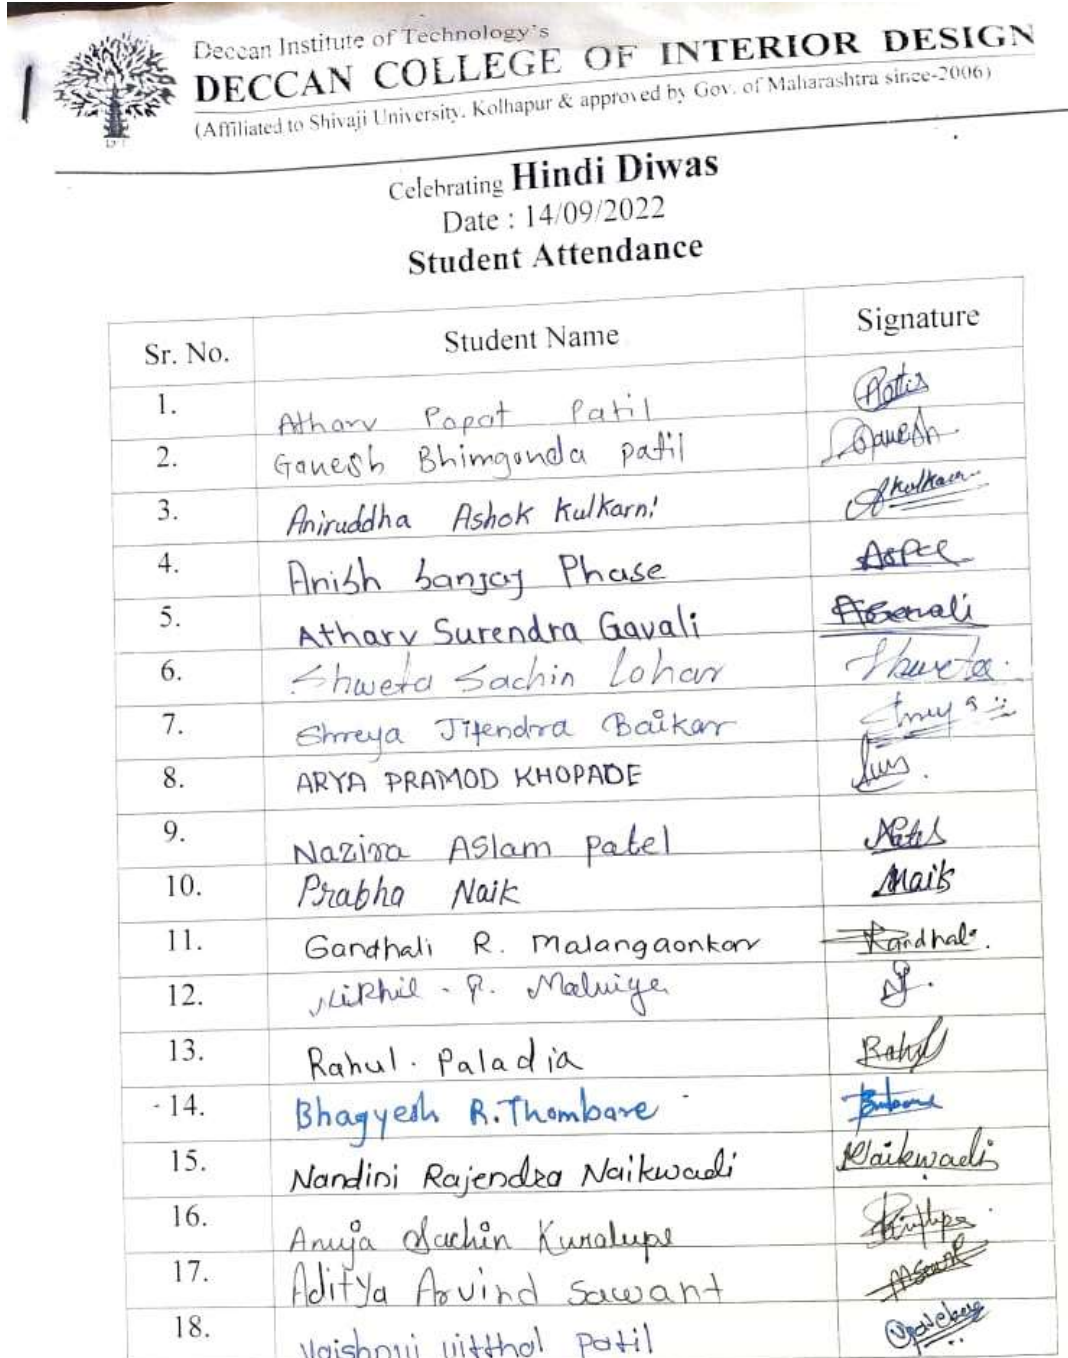 Deccan Institute of Technology's
DECCAN COLLEGE OF INTERIOR DESIGN
(Affiliated to Shivaji University, Kolhapur & approved by Gov. of Maharashtra since-2006)
Celebrating Hindi Diwas
Date : 14/09/2022
Student Attendance
Sr. No. Student Name Signature
1. Atharv Popat Patil
2. Ganesh Bhimgonda patil Ganesh
3. Aniruddha Ashok Kulkarni Akulkarni
4. Anish Sanjay Phase
5. Atharv Surendra Gavali
6. Shweta Sachin Lohar Shweta
7. Shreya Jitendra Baikar
8. ARYA PRAMOD KHOPADE
9. Nazira Aslam patel
10. Prabha Naik Naik
11. Gandhali R. Malangaonkar
12. Nikhil . P.
13. Rahul . Paladia Rahul
14. Bhagyesh R.Thombare
15. Nandini Rajendra Naikwadi Naikwadi
16. Anuja Sachin
17. Aditya Arvind Sawant
18. Vaishnvi vitthal patil